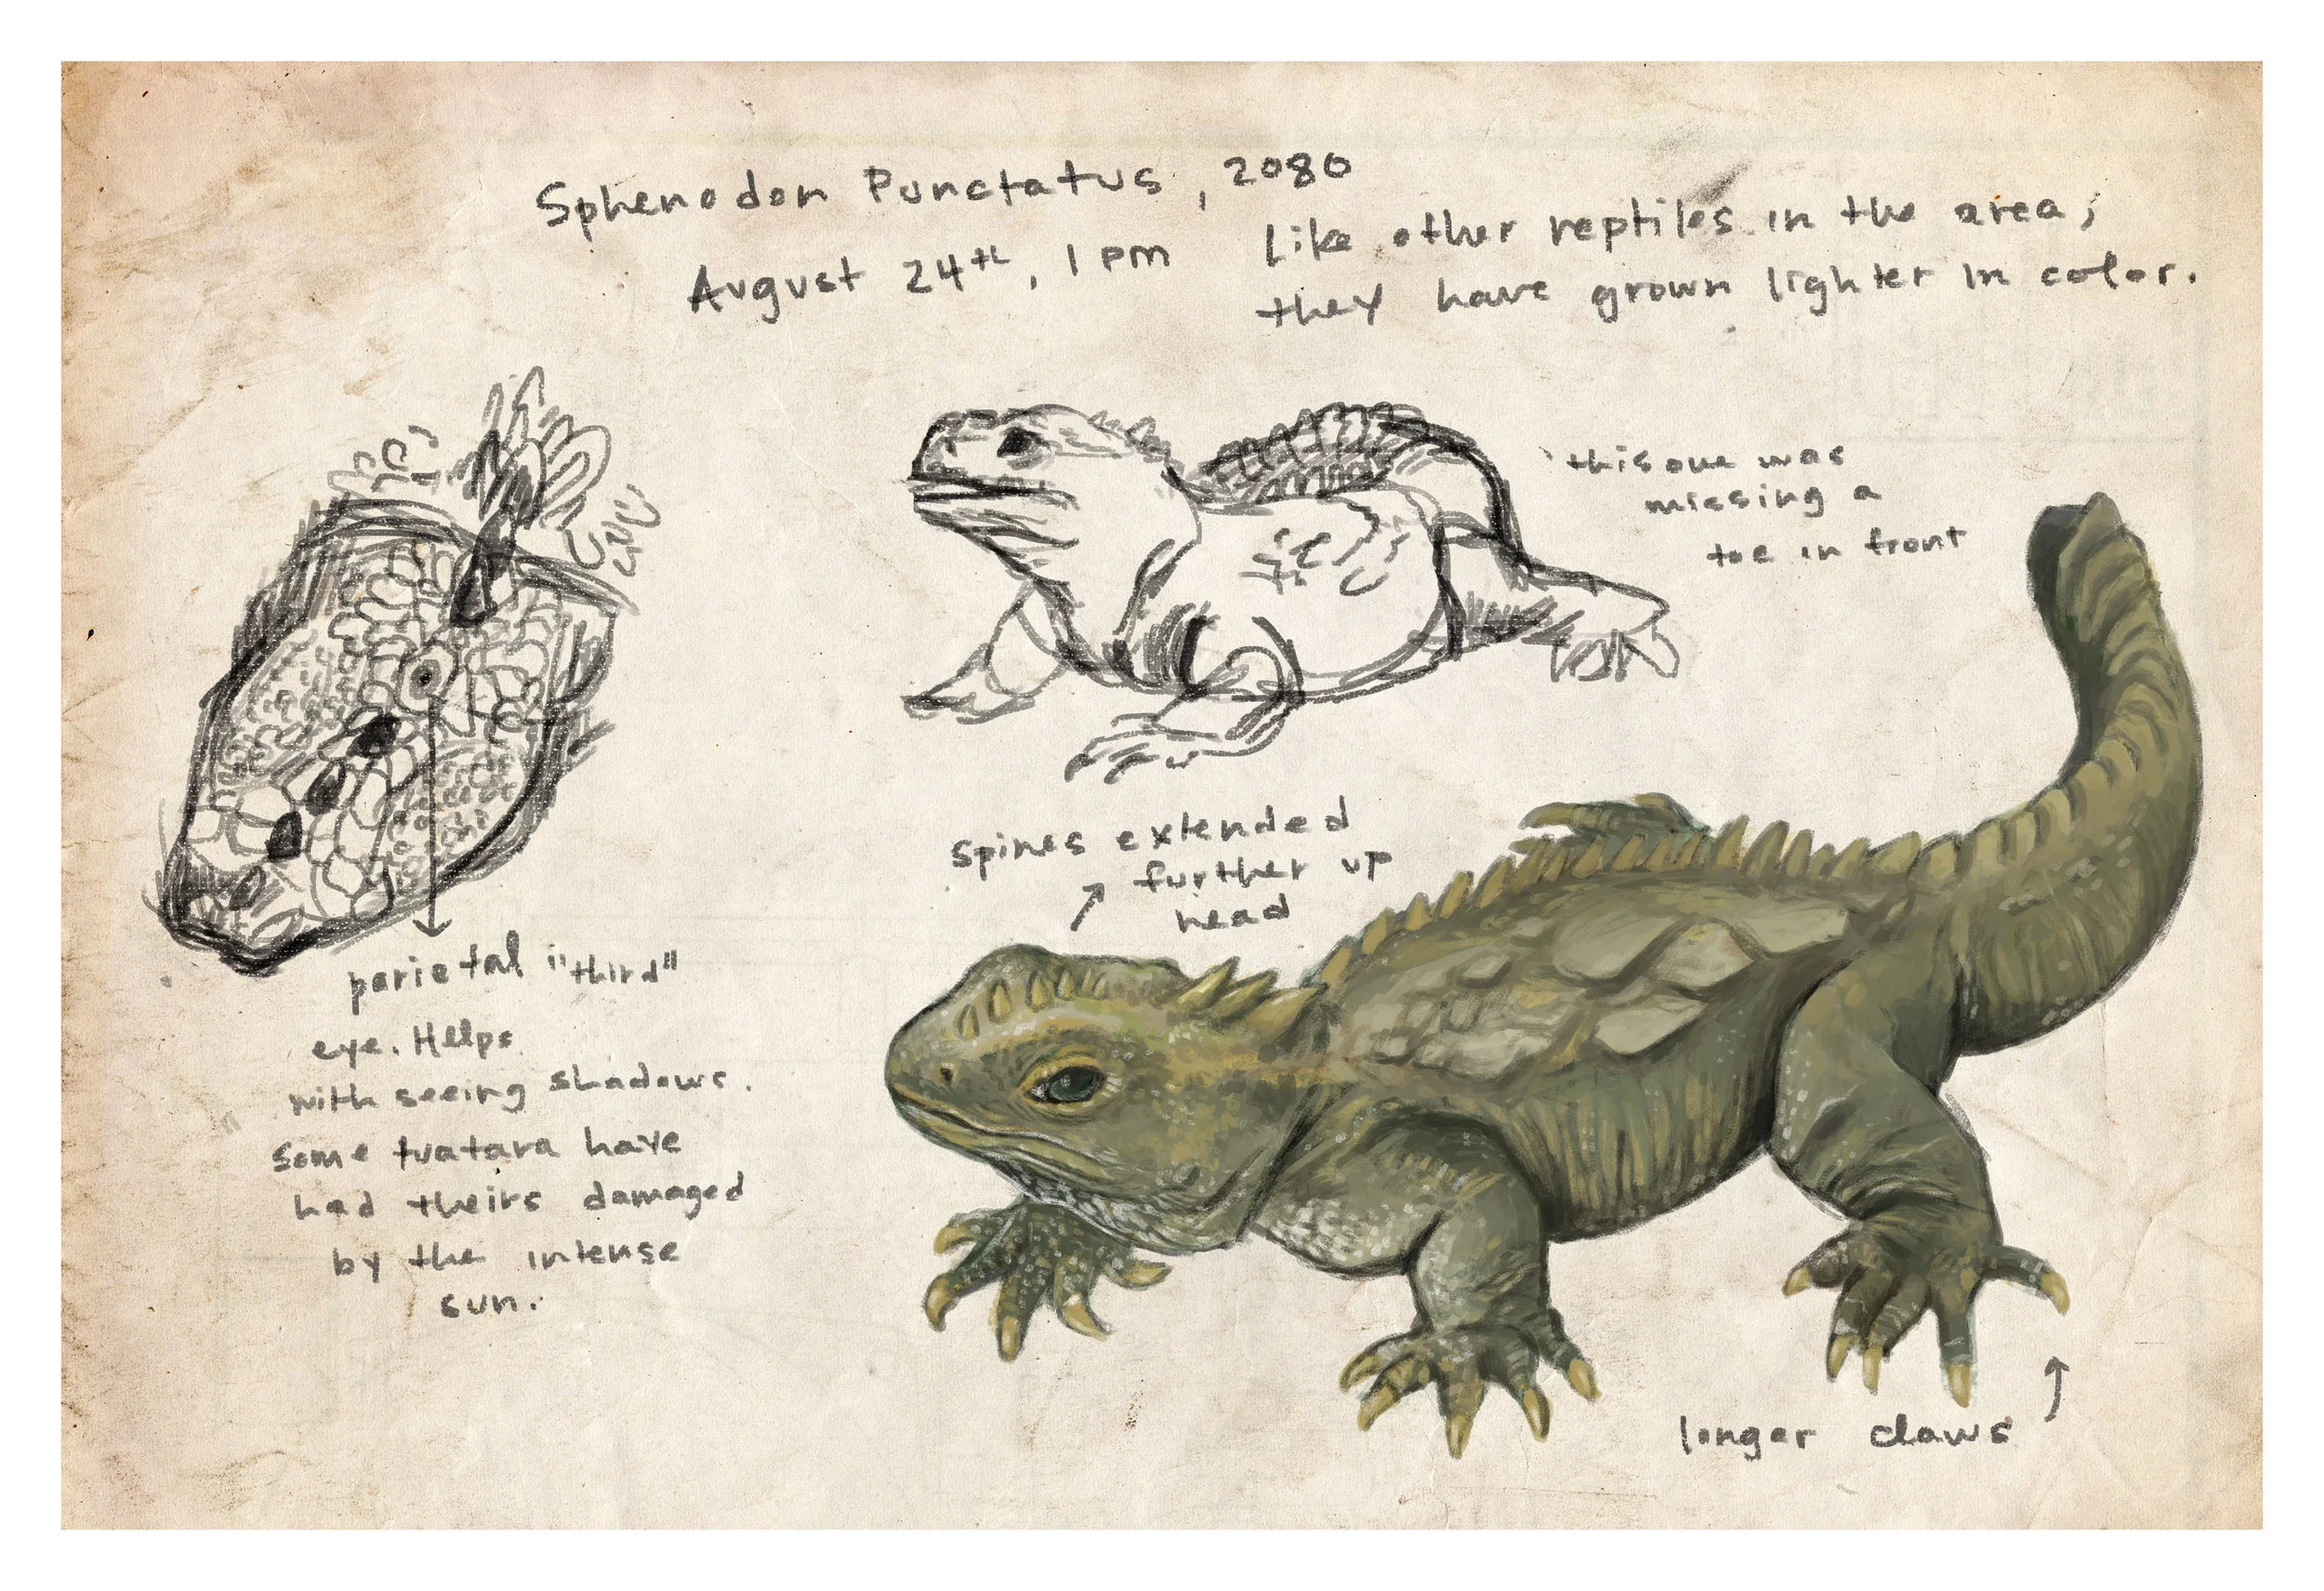 Sphenodon Punctatus, 2080
August 24th, 1 pm
Like other reptiles in the area,
they have grown lighter in color.
this one was
missing a
toe in front
spines extended
further up
head
parietal "third"
eye. Helps
with seeing shadows.
Some tuatara have
had theirs damaged
by the intense
sun.
longer claws